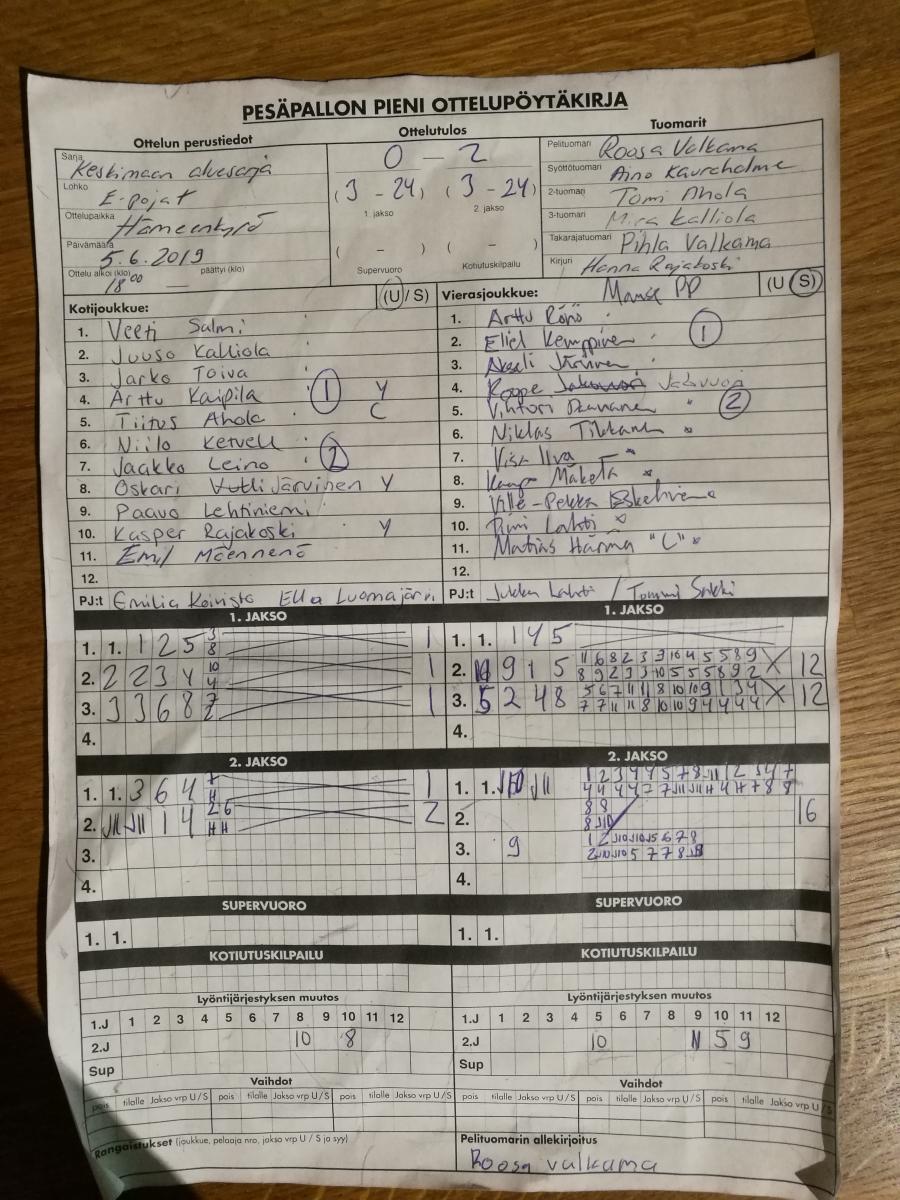 PESÄPALLON PIENI OTTELUPÖYTÄKIRJA
Ottelun perustiedot
Sarja Keskimaan aluesarja
Lohko E-pojat
Ottelupaikka Hämeenkyrö
Päivämäärä 5.6.2019
Ottelu alkoi (klo) 18 00 päättyi (klo) —
Ottelutulos
0 – 2
(3 - 24) (3 - 24)
1. jakso 2. jakso
( – ) ( – )
Supervuoro Kotiutuskilpailu
Tuomarit
Pelituomari Roosa Valkama
Syöttötuomari Aino
2-tuomari Tomi Ahola
3-tuomari Mira Kalliola
Takarajatuomari Pihla Valkama
Kirjuri Hanna Rajakoski
Kotijoukkue: (U / S)
1. Veeti Salmi
2. Juuso Kalliola
3. Jarko Toiva
4. Arttu Kaipila 1 Y
5. Tiitus Ahola C
6. Niilo Ketvell
7. Jaakko Leino 2
8. Oskari Järvinen Y
9. Paavo Lehtiniemi
10. Kasper Rajakoski Y
11. Emil Mäennenä
12.
PJ:t Emilia Koivisto Ella Luomajärvi
Vierasjoukkue: Manse PP (U / S)
1. Arttu
2. Eliel Kemppinen 1
3. Akseli
4. Roope
5. Vihtori 2
6. Niklas Tikkanen
7. Visa
8. Mäkelä
9. Ville-Pekka
10. Lahti
11. Matias Härmä "C"
12.
PJ:t Jukka Lahti / Tommi
1. JAKSO
1. 1. 1 2 5 3 8 1
2. 2 2 3 4 10 4 1
3. 3 3 6 8 7 2 1
4.
2. JAKSO
1. 1. 3 6 4 7 11 1
2. 1 4 2 6 2
3.
4.
SUPERVUORO
1. 1.
KOTIUTUSKILPAILU
Lyöntijärjestyksen muutos
1.J 1 2 3 4 5 6 7 8 9 10 11 12
2.J 10 8
Sup
Vaihdot
pois tilalle Jakso vrp U / S pois tilalle Jakso vrp U / S pois tilalle Jakso vrp U / S
Rangaistukset (joukkue, pelaaja nro, jakso vrp U / S ja syy)
1. JAKSO
1. 1. 1 4 5
2. 9 1 5 11 6 8 2 3 3 10 4 5 5 8 9 X 12
8 9 2 3 3 10 5 5 5 8 9 2
3. 5 2 4 8 5 6 7 11 11 8 10 10 9 1 3 4 X 12
7 7 11 11 8 10 10 9 4 4 4 4
4.
2. JAKSO
1. 1. 1 2 3 4 4 5 7 8
2. 8 8 16
3. 9
4.
SUPERVUORO
1. 1.
KOTIUTUSKILPAILU
Lyöntijärjestyksen muutos
1.J 1 2 3 4 5 6 7 8 9 10 11 12
2.J 10 5 9
Sup
Vaihdot
pois tilalle Jakso vrp U / S pois tilalle Jakso vrp U / S pois tilalle Jakso vrp U / S
Pelituomarin allekirjoitus
Roosa Valkama